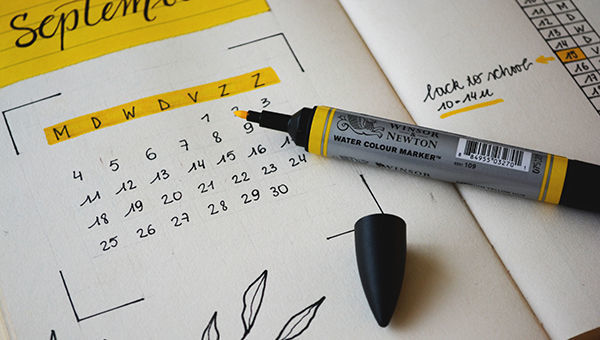 September
M D W D V Z Z
1 2 3
4 5 6 7 8 9
11 12 13 14 15 16
18 19 20 21 22 23 24
25 26 27 28 29 30
WINSOR
& NEWTON
WATER COLOUR MARKER™
WINSOR
109
back to school
10-14u
11 M
12 D
13 W
14 D
15 V
16
17